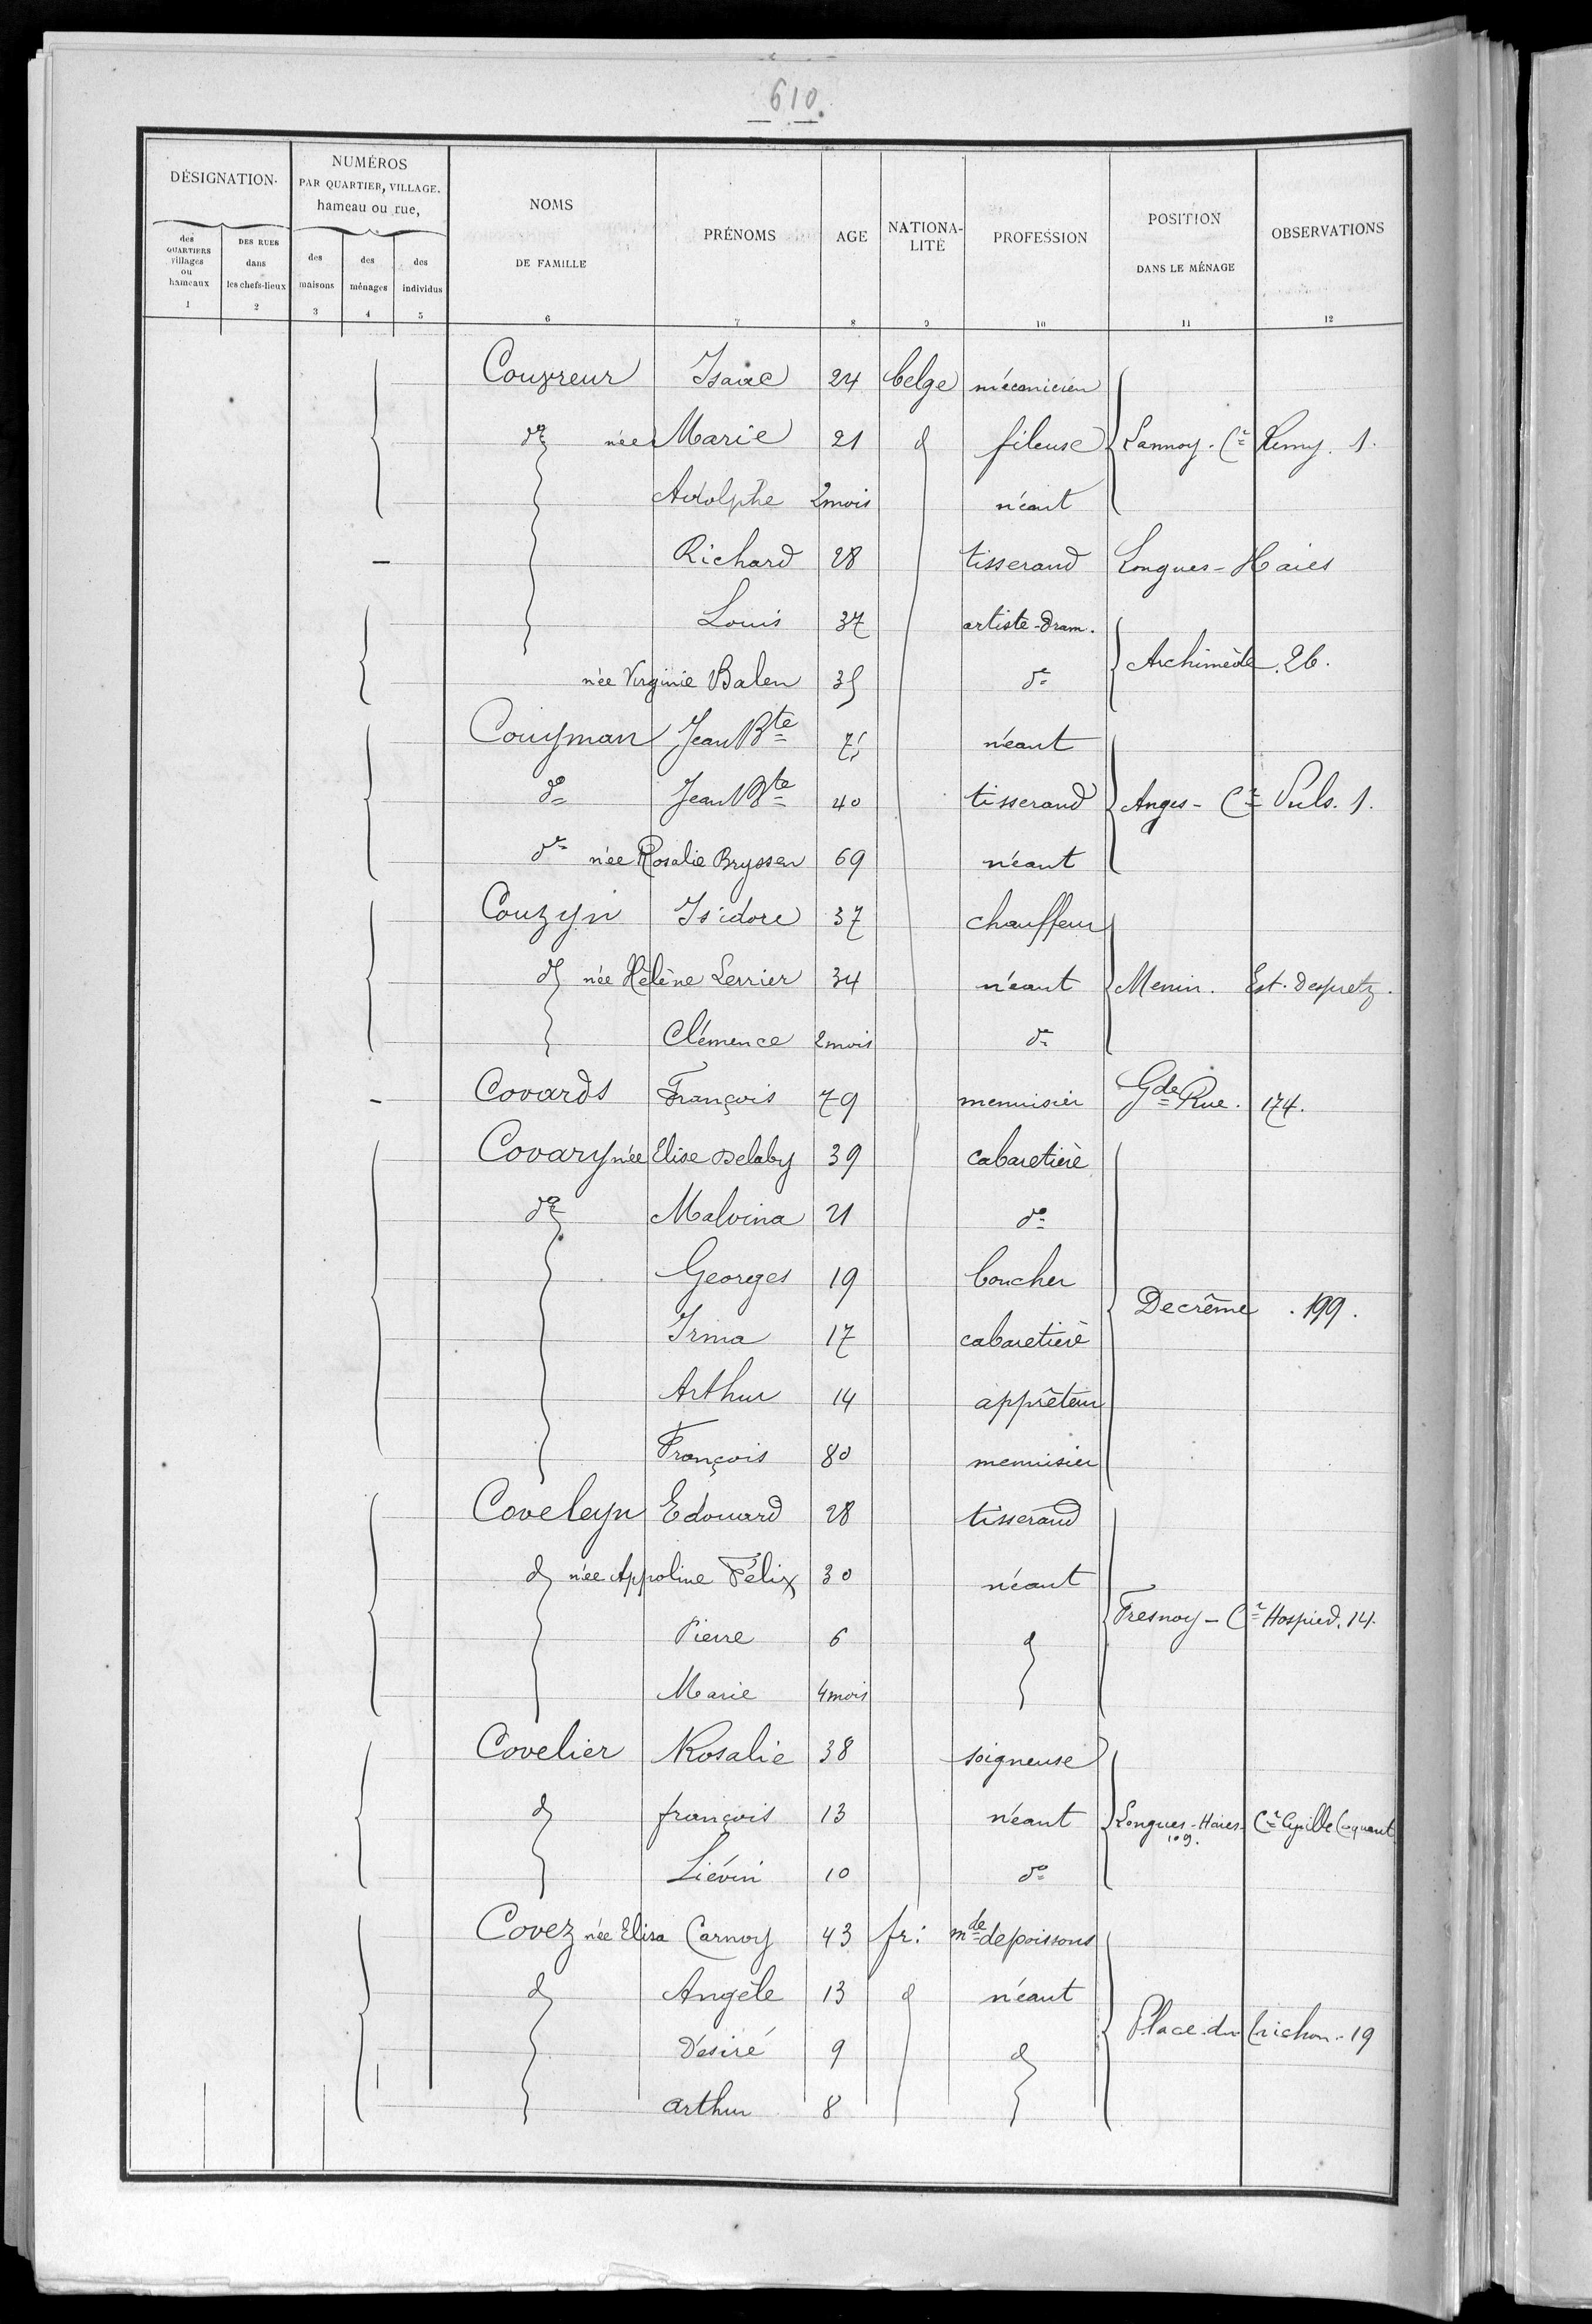 610.
DÉSIGNATION.
NUMÉROS PAR QUARTIER, VILLAGE. hameau ou rue,
NOMS DE FAMILLE
PRÉNOMS
AGE
NATIONA-LITÉ
PROFESSION
POSITION DANS LE MÉNAGE
OBSERVATIONS
des QUARTIERS villages ou hameaux
DES RUES dans les chefs-lieux
des maisons
des ménages
des individus
1 2 3 4 5 6 7 8 9 10 11 12
Couvreur Isaac 24 belge mécanicien
do née Marie 21 d fileuse Lannoy. Cr Remy. 1.
Adolphe 2 mois néant
Richard 28 tisserand Longues-Haies
Louis 37 artiste-dram.
née Virginie Balen 35 do Archimède. 26.
Couyman Jean Bte 75 néant
do Jean Bte 40 tisserand Anges - Cr Puls. 1.
do née Rosalie Bryssen 69 néant
Couzyn Isidore 37 chauffeur
d née Hélène Lerrier 34 néant Menin. Est. Despretz.
Clémence 2 mois do
Covards François 79 menuisier Gde Rue. 174.
Covary née Elise Delaby 39 cabaretière
do Malvina 21 do
Georges 19 boucher
Decrême. 199.
Irma 17 cabaretière
Arthur 14 apprêteur
François 80 menuisier
Coveleyn Edouard 28 tisserand
d née Appoline Félix 30 néant
Fresnoy - Cr Hospied. 14.
Pierre 6 d
Marie 4 mois
Covelier Rosalie 38 soigneuse
d françois 13 néant Longues-Haies- 109. Cr Cyrille Coquant
Liévin 10 do
Covez née Elisa Carnoy 43 fr: mde de poissons
d Angèle 13 d néant
Place du Trichon. 19
Désiré 9 d
arthur 8